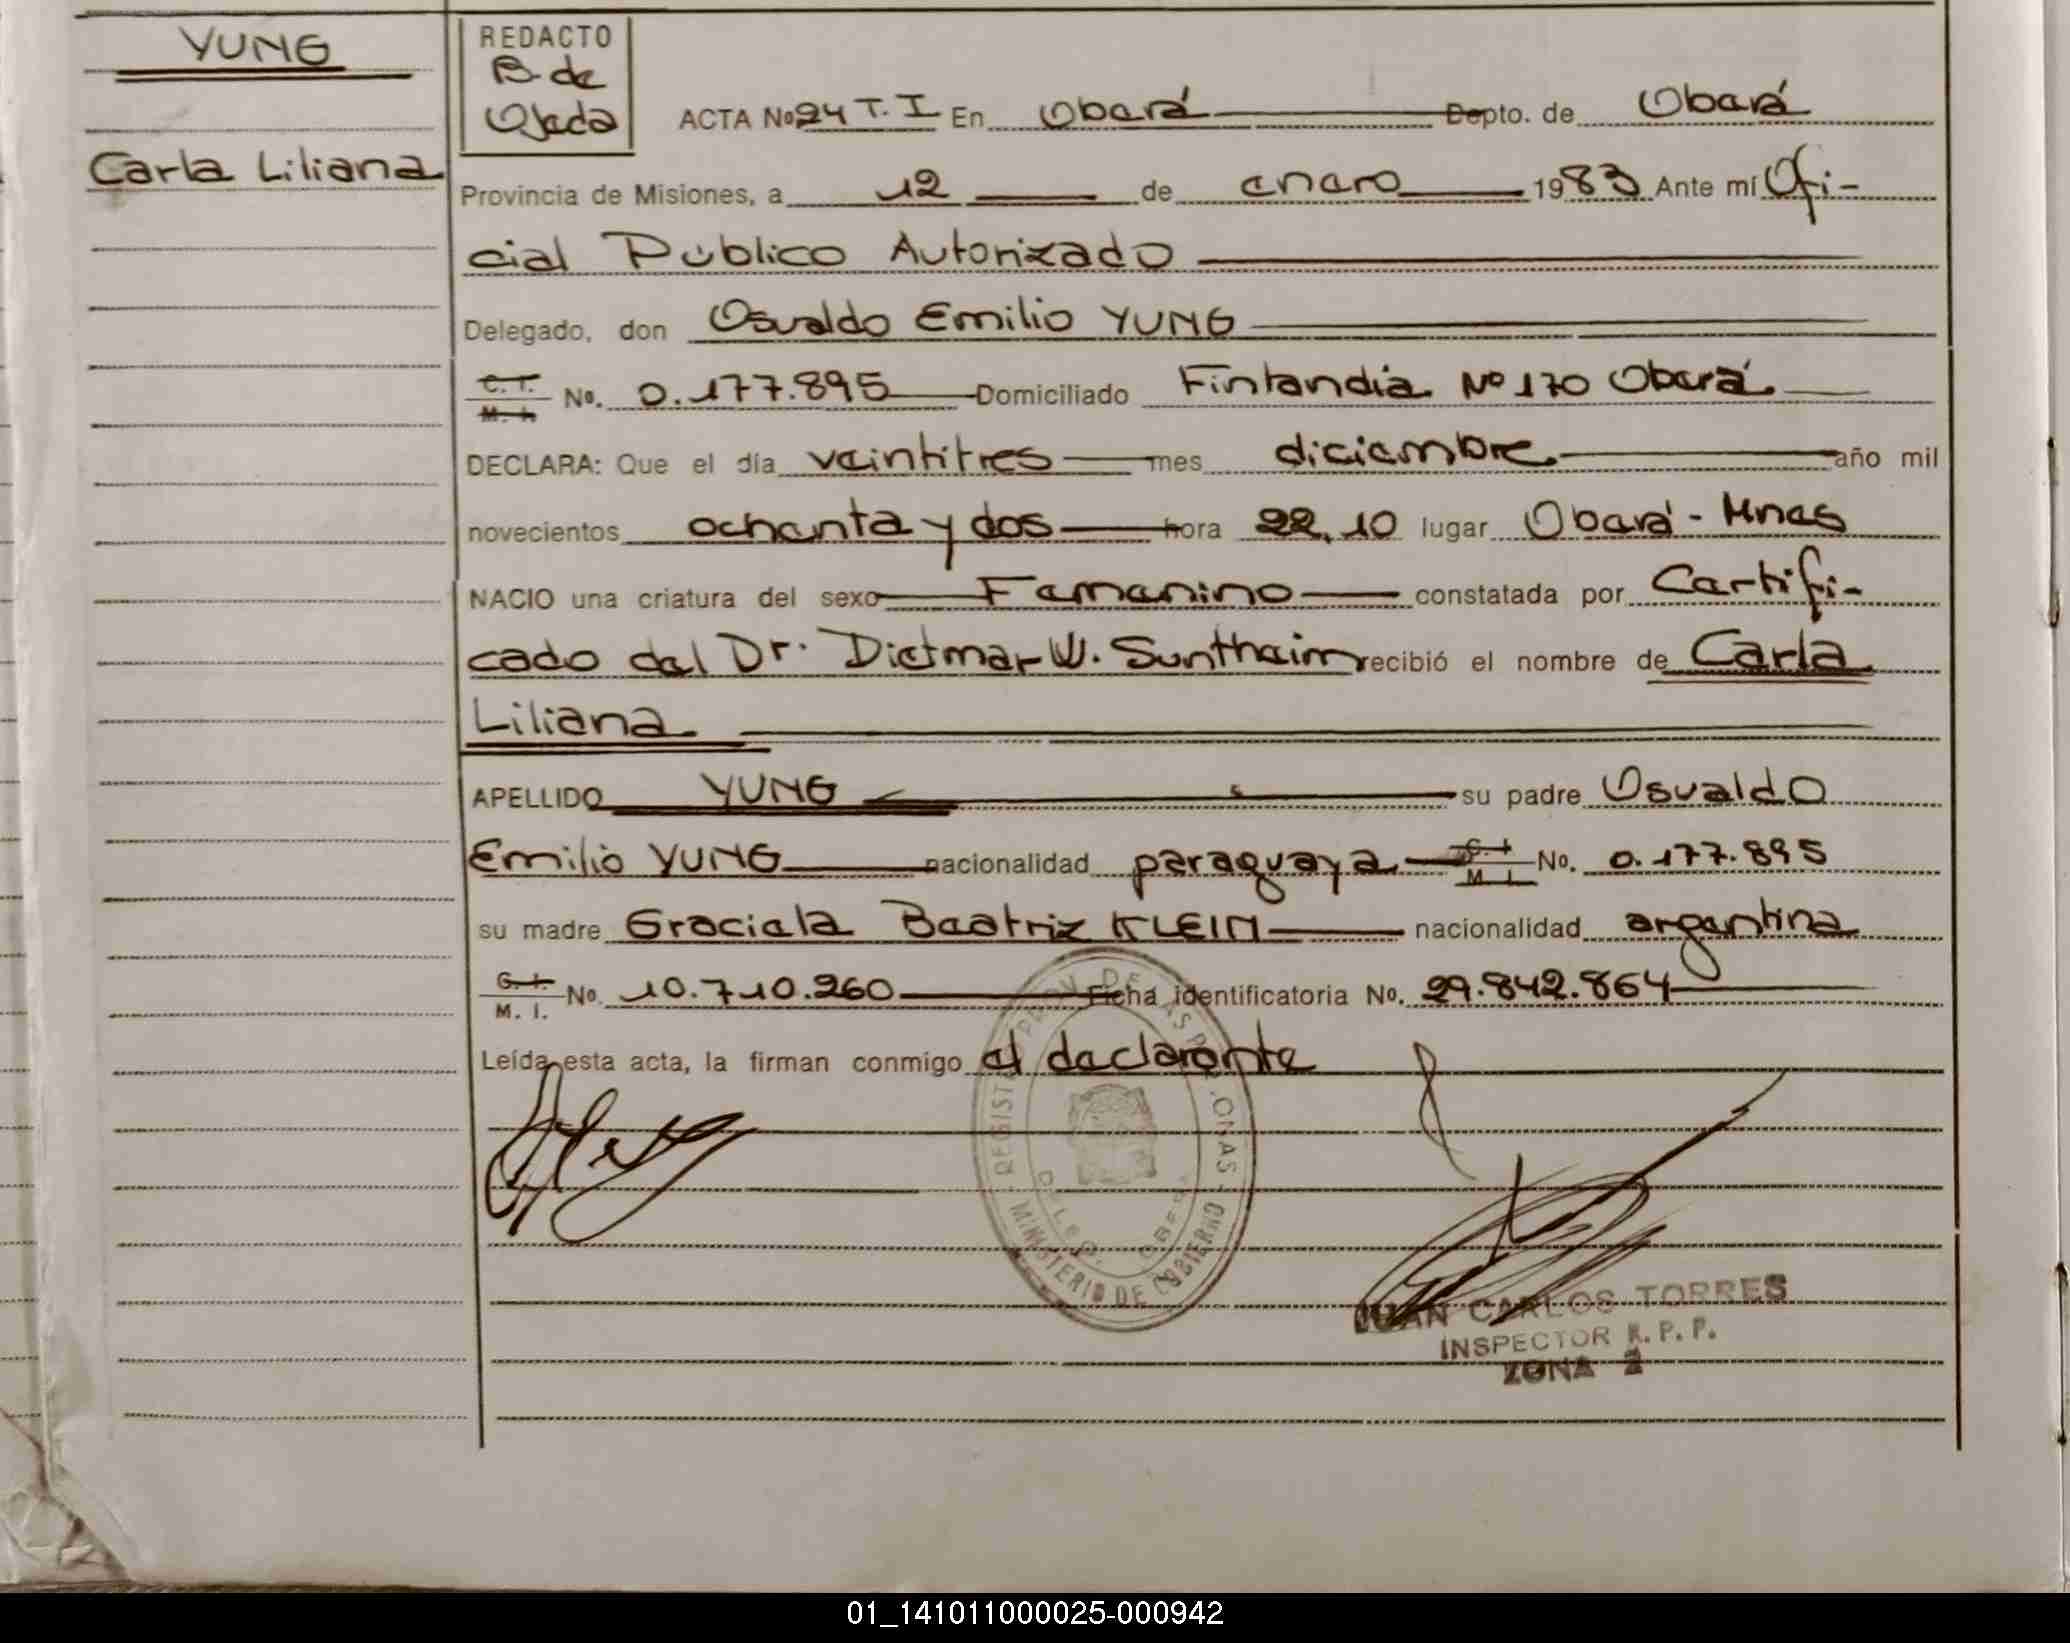 YUNG
Carla Liliana
REDACTO
B. de
Ojeda
ACTA No 24 T. I En Oberá Depto. de Oberá
Provincia de Misiones, a 12 de enero 1983 Ante mí Ofi-
cial Público Autorizado
Delegado, don Osvaldo Emilio YUNG
C. I. M. I. No. 0.177.895 Domiciliado Finlandia Nº 170 Oberá
DECLARA: Que el día veintitres mes diciembre año mil
novecientos ochenta y dos hora 22,10 lugar Oberá - Mnes
NACIO una criatura del sexo Femenino constatada por Certifi-
cado del Dr. Dietmar W. Suntheim recibió el nombre de Carla
Liliana
APELLIDO YUNG su padre Osvaldo
Emilio YUNG nacionalidad paraguaya C. I. M. I. No. 0.177.895
su madre Graciela Beatriz KLEIN nacionalidad argentina
C. I. M. I. No. 10.710.260 Ficha identificatoria No. 29.842.864
Leída esta acta, la firman conmigo el declarante
MINISTERIO DE GOBIERNO
JUAN CARLOS TORRES
INSPECTOR R. P. P.
ZONA 2
01_141011000025-000942